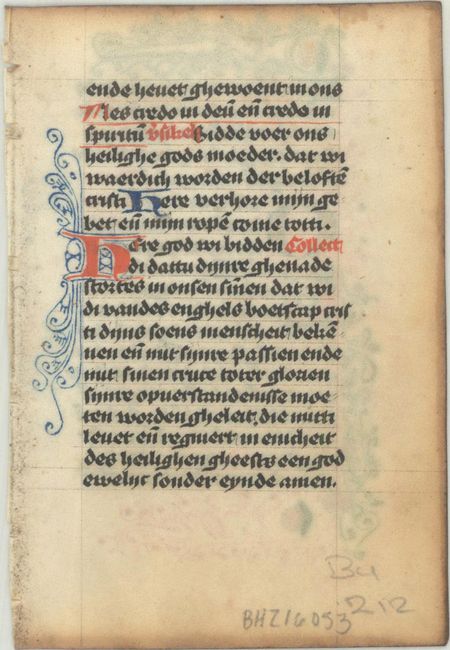 ende hevet ghewoent in ons
Ales credo in deū eñ credo in
spiritū v̄sikel Bidde voer ons
heilighe gods moeder. dat wi
waerdich worden der beloftē
cristi Here verhore mijn ge
bet. eñ mijn ropē come totti.
Here god wi bidden Collect
di dattu dijnre ghenade
stortes in onsen sinen dat wi
di vandes enghels boetscap cris
ti dijns soens menscheit bekē
nen eñ mit sijnre passien ende
mit sinen cruce toter glorien
sijnre opverstandenisse moe
ten worden gheleit, die mitti
levet eñ regniert in enicheit
des heilighen gheests een god
ewelijc sonder eynde amen.
Bu
212
BHZ16053